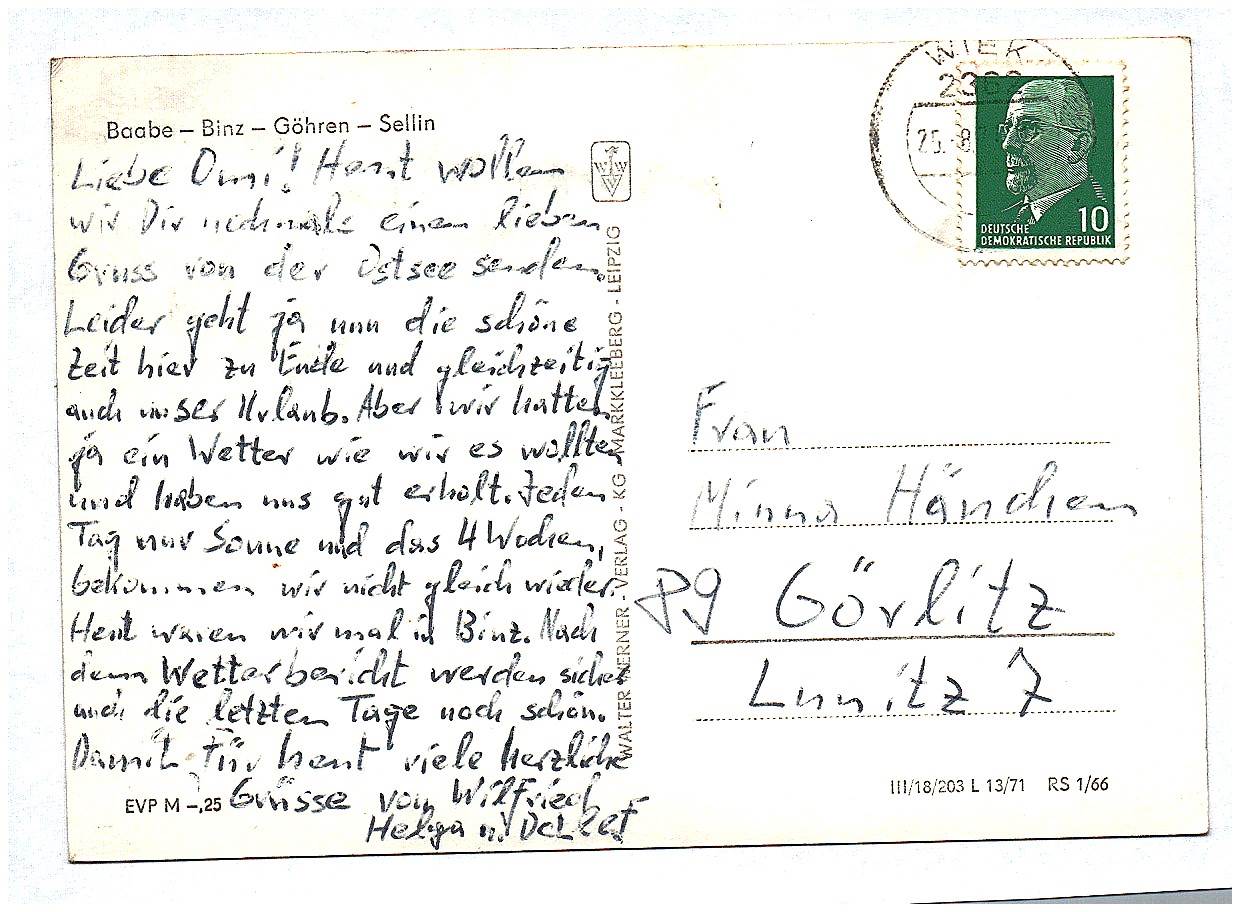 Baabe – Binz – Göhren – Sellin
Liebe Omi! Heut wollen
wir Dir nochmals einen lieben
Gruss von der Ostsee senden.
Leider geht ja nun die schöne
Zeit hier zu Ende und gleichzeitig
auch unser Urlaub. Aber wir hatten
ja ein Wetter wie wir es wollten
und haben uns gut erholt. Jeden
Tag nur Sonne und das 4 Wochen,
bekommen wir nicht gleich wieder.
Heut waren wir mal in Binz. Nach
dem Wetterbericht werden sicher
auch die letzten Tage noch schön.
Damit für heut viele herzliche
Grüsse von Wilfried
Helga u. Detlef
EVP M –,25
WALTER WERNER - VERLAG - KG - MARKKLEEBERG - LEIPZIG
WIEK
25.-8.
10
DEUTSCHE
DEMOKRATISCHE REPUBLIK
Frau
Minna Hänchen
89 Görlitz
Lunitz 7
III/18/203 L 13/71 RS 1/66